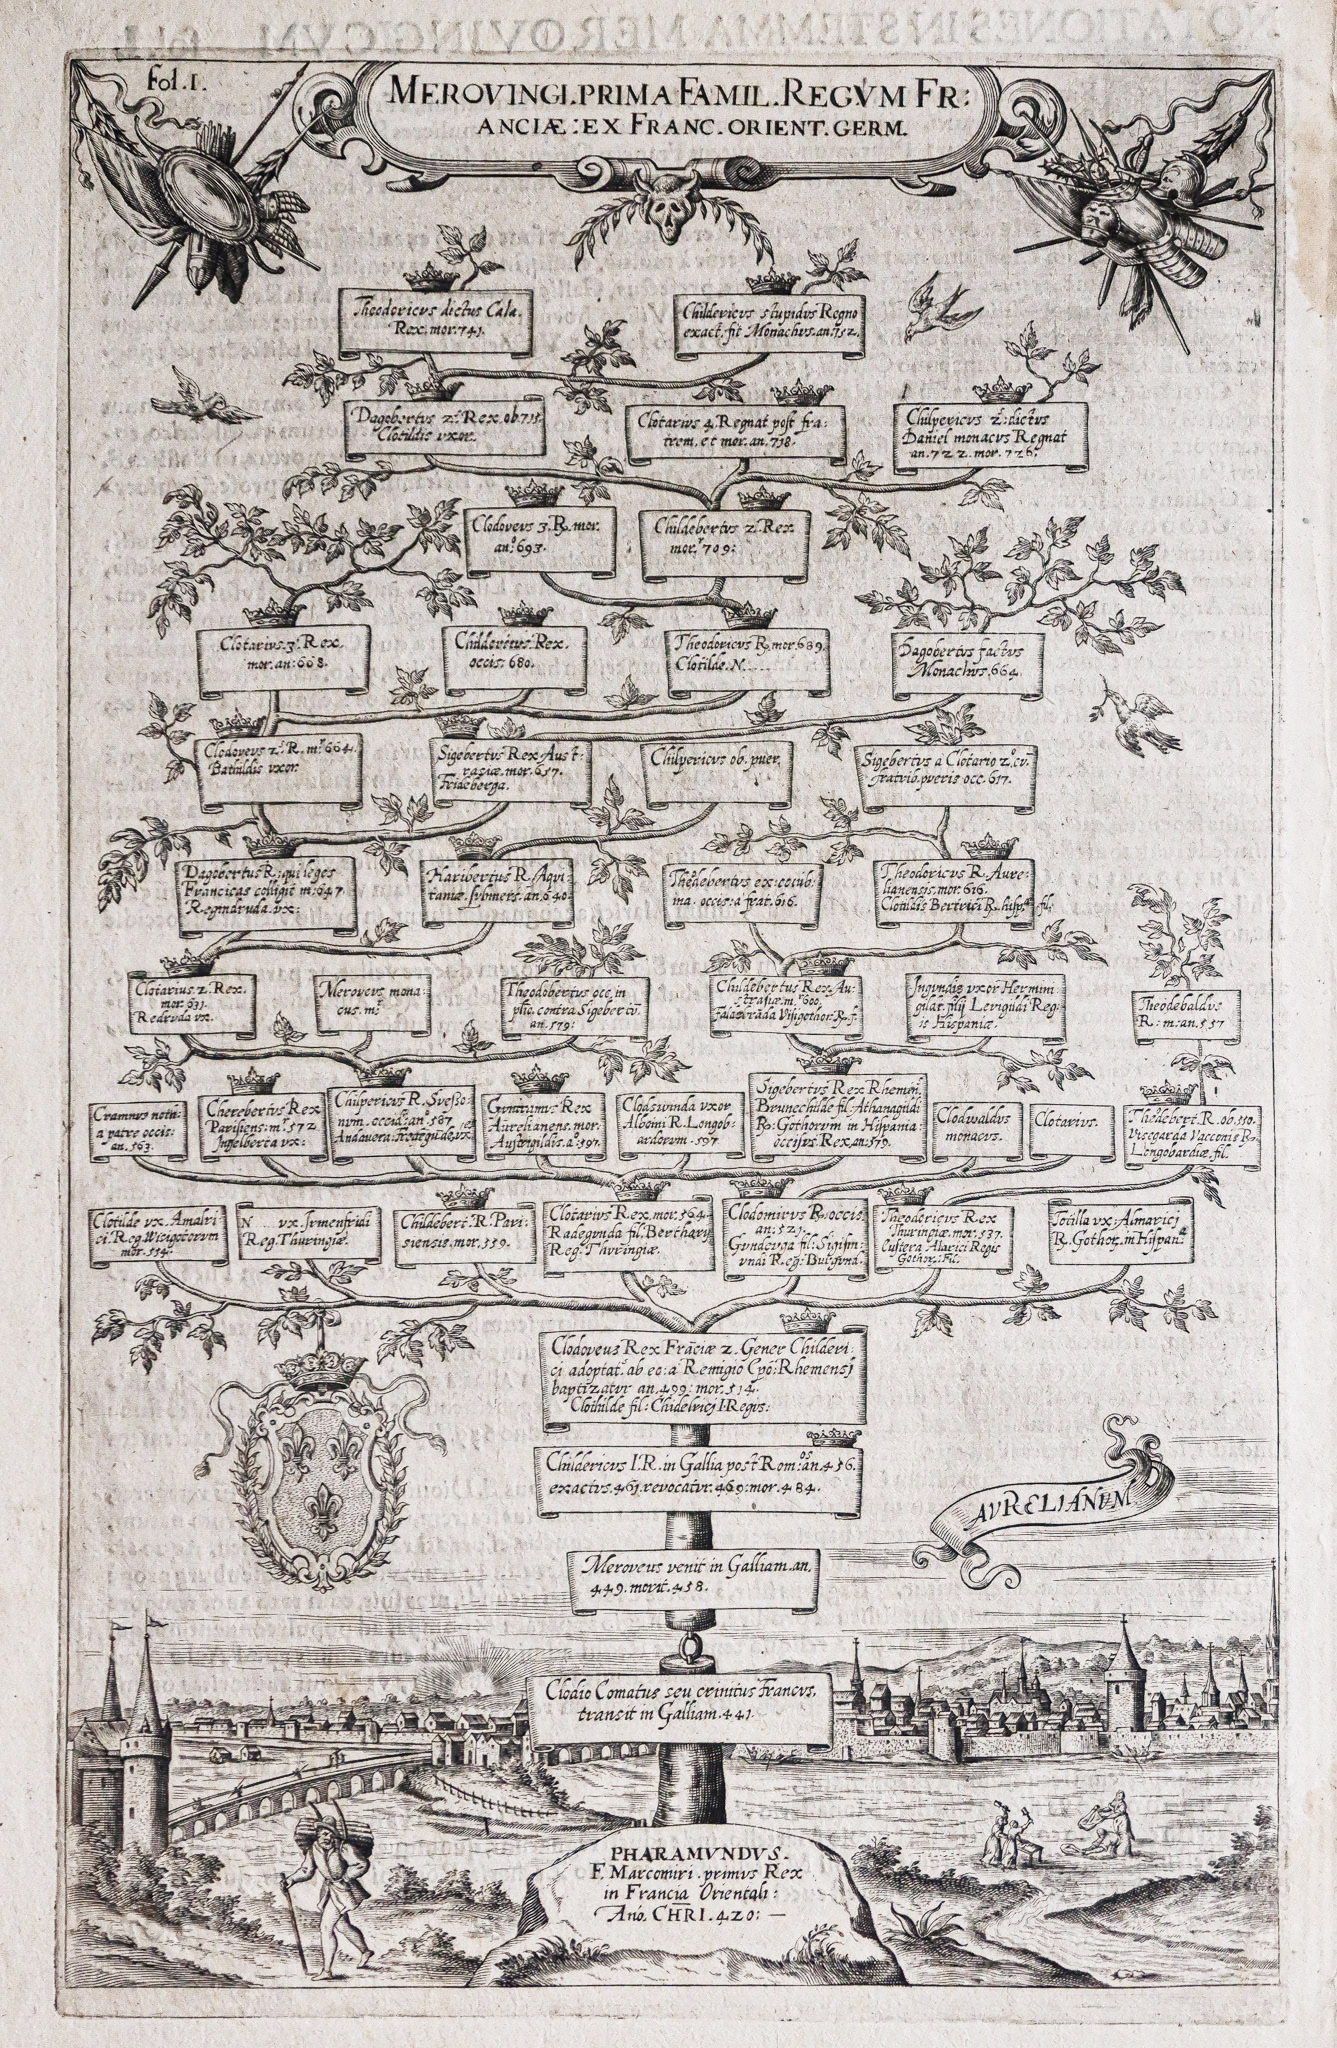 Fol. I.
MEROVINGI. PRIMA FAMIL. REGVM FR:
ANCIÆ: EX FRANC. ORIENT. GERM.
Theodoricus dictus Cala.
Rex. mor. 741.
Childericus stupidus Regno
exact. fit Monachus. an. 752.
Dagobertus 2.us Rex. ob. 715
Clotildis vxor.
Clotarius 4. Regnat post fra:
trem, et mor. an. 718.
Chilpericus 2.: dictus
Daniel monacus Regnat
an. 722. mor. 726.
Clodoveus 3. R. mor.
an.o 693.
Childebertus 2.us Rex
mor.r 709:
Clotarius. 3.us Rex.
mor. an: 668.
Childericus. Rex.
occis: 680.
Theodoricus R. mor. 689.
Clotilde. N.....
Dagobertus factus
Monachus. 664.
Clodoveus 2.us R. m.r 664.
Batuldis vxor.
Sigebertus Rex Aust:
rasiæ. mor. 657.
Chilpericus ob. puer.
Sigebertus a Clotario 2.o cū
fratrib. pueris occ. 617.
Dagobertus R: qui leges
Francicas colligit m: 647
vx:
Haribertus R. Aqui
taniæ. an. 640.
Theodebertus ex:
ma. occis: a frat. 616.
Theodoricus R. Aure-
lianensis. mor. 616.
Clotildis Bertrici R. fil.
Clotarius 2. Rex.
mor: 631.
vx.
Meroveus mona:
cus. m.r
Theodobertus occ. in
plio. contra Sigebertū.
an. 579:
Childebertus Rex Au:
strasiæ. m.r 600.
Visigothor. R. f.
Ingundis vxor Hermini
gildi. filij Levigildi Reg:
is Hispaniæ.
Theodebaldus
R.: m: an. 557
Cramnus
a patre occis:
an. 563.
Cherebertus Rex
Parisiens: m.r 572
Ingelberta vx:
Chilpericus R. Sveßo:
num. occid: an.o 587
Andauera: vx
Guntramus Rex
Aurelianens. mor:
a.o 597.
Clodswinda vxor
Alboini R. Longob:
ardorum. 597.
Sigebertus Rex Rhemen:
Brunechilde fil: Athanagildi
R: Gothorum in Hispania:
occisus. Rex. an: 579.
Clodwaldus
monacus.
Clotarius.
Theodebert. R. ob. 550.
Visegarda Vacconis R.
Longobardiæ. fil.
Clotilde vx. Amalri
ci. Reg. Wisigotorum
mor. 534.
N..... vx. Irmenfridi
Reg. Thuringiæ.
Childebert. R. Pari:
siensis. mor. 559.
Clotarius Rex. mor: 564
Radegunda fil. Berthary
Reg. Thuringiæ.
Clodomirus R. occis.
an: 521.
fil: Sigism:
undi R. eg: Burgund.
Theodericus Rex
Thuringiæ. mor: 537.
Alarici Regis
Gothor: Fil.
vx: Almarici
R. Gothor. in Hispan.a
Clodoveus Rex Frāciæ 2. Gener Childeri:
ci adoptat.9 ab eo: a Remigio Epo: Rhemensj
baptizatur an. 499: mor. 514.
Clothilde fil: Chidelricj I. Regis:
Childericus I. R. in Gallia post Rom: os an. 456.
exactus. 461. revocatur. 469: mor. 484.
Meroveus venit in Galliam. an.
449. morit. 458.
AVRELIANVM
Clodio Comatus seu crinitus Francus.
transit in Galliam. 441.
PHARAMVNDVS.
F. Marcomiri. primus Rex
in Francia Orientali:
Año. CHRI. 420: —